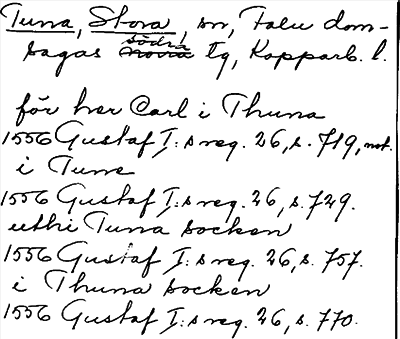 Tuna, Stora, sn, Falu dom-
sagas södra norra tg, Kopparb. l.
för her Carl i Thuna
1556 Gustaf I:s reg. 26, s. 719, not.
i Tune
1556 Gustaf I:s reg. 26, s. 729.
uthi Tuna socken
1556 Gustaf I:s reg. 26, s. 757.
i Thuna socken
1556 Gustaf I:s reg. 26, s. 770.